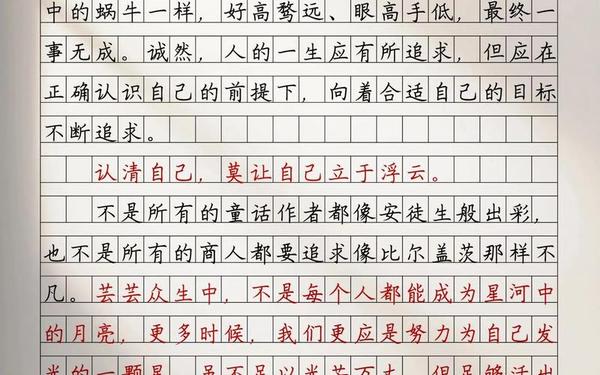 中的蜗牛一样，好高骛远、眼高手低，最终一
事无成。诚然，人的一生应有所追求，但应在
正确认识自己的前提下，向着合适自己的目标
不断追求。
认清自己，莫让自己立于浮云。
不是所有的童话作者都像安徒生般出彩，
也不是所有的商人都要追求像比尔盖茨那样不
凡。芸芸众生中，不是每个人都能成为星河中
的月亮，更多时候，我们更应是努力为自己发
光的一颗星，虽不足以光芒万丈，但足够活出